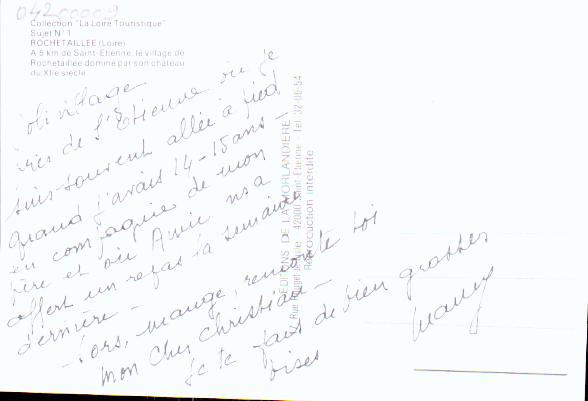 04200009
Collection "La Loire Touristique"
Sujet N° 1
ROCHETAILLEE (Loire)
A 5 km de Saint-Etienne, le village de
Rochetaillée dominé par son château
du XIIe siècle
Joli village
près de St Etienne où je
suis souvent allée à pied
quand j'avais 14-15 ans -
en compagnie de mon
père et où Annie ns a
offert un repas la semaine
dernière -
- Dors, mange, remonte toi
mon cher Christian -
Je te fais de bien grosses
bises
Mamy
EDITIONS DE LA MORLANDIERE
42000 Saint-Etienne - Tél. 32-06-54
Reproduction interdite